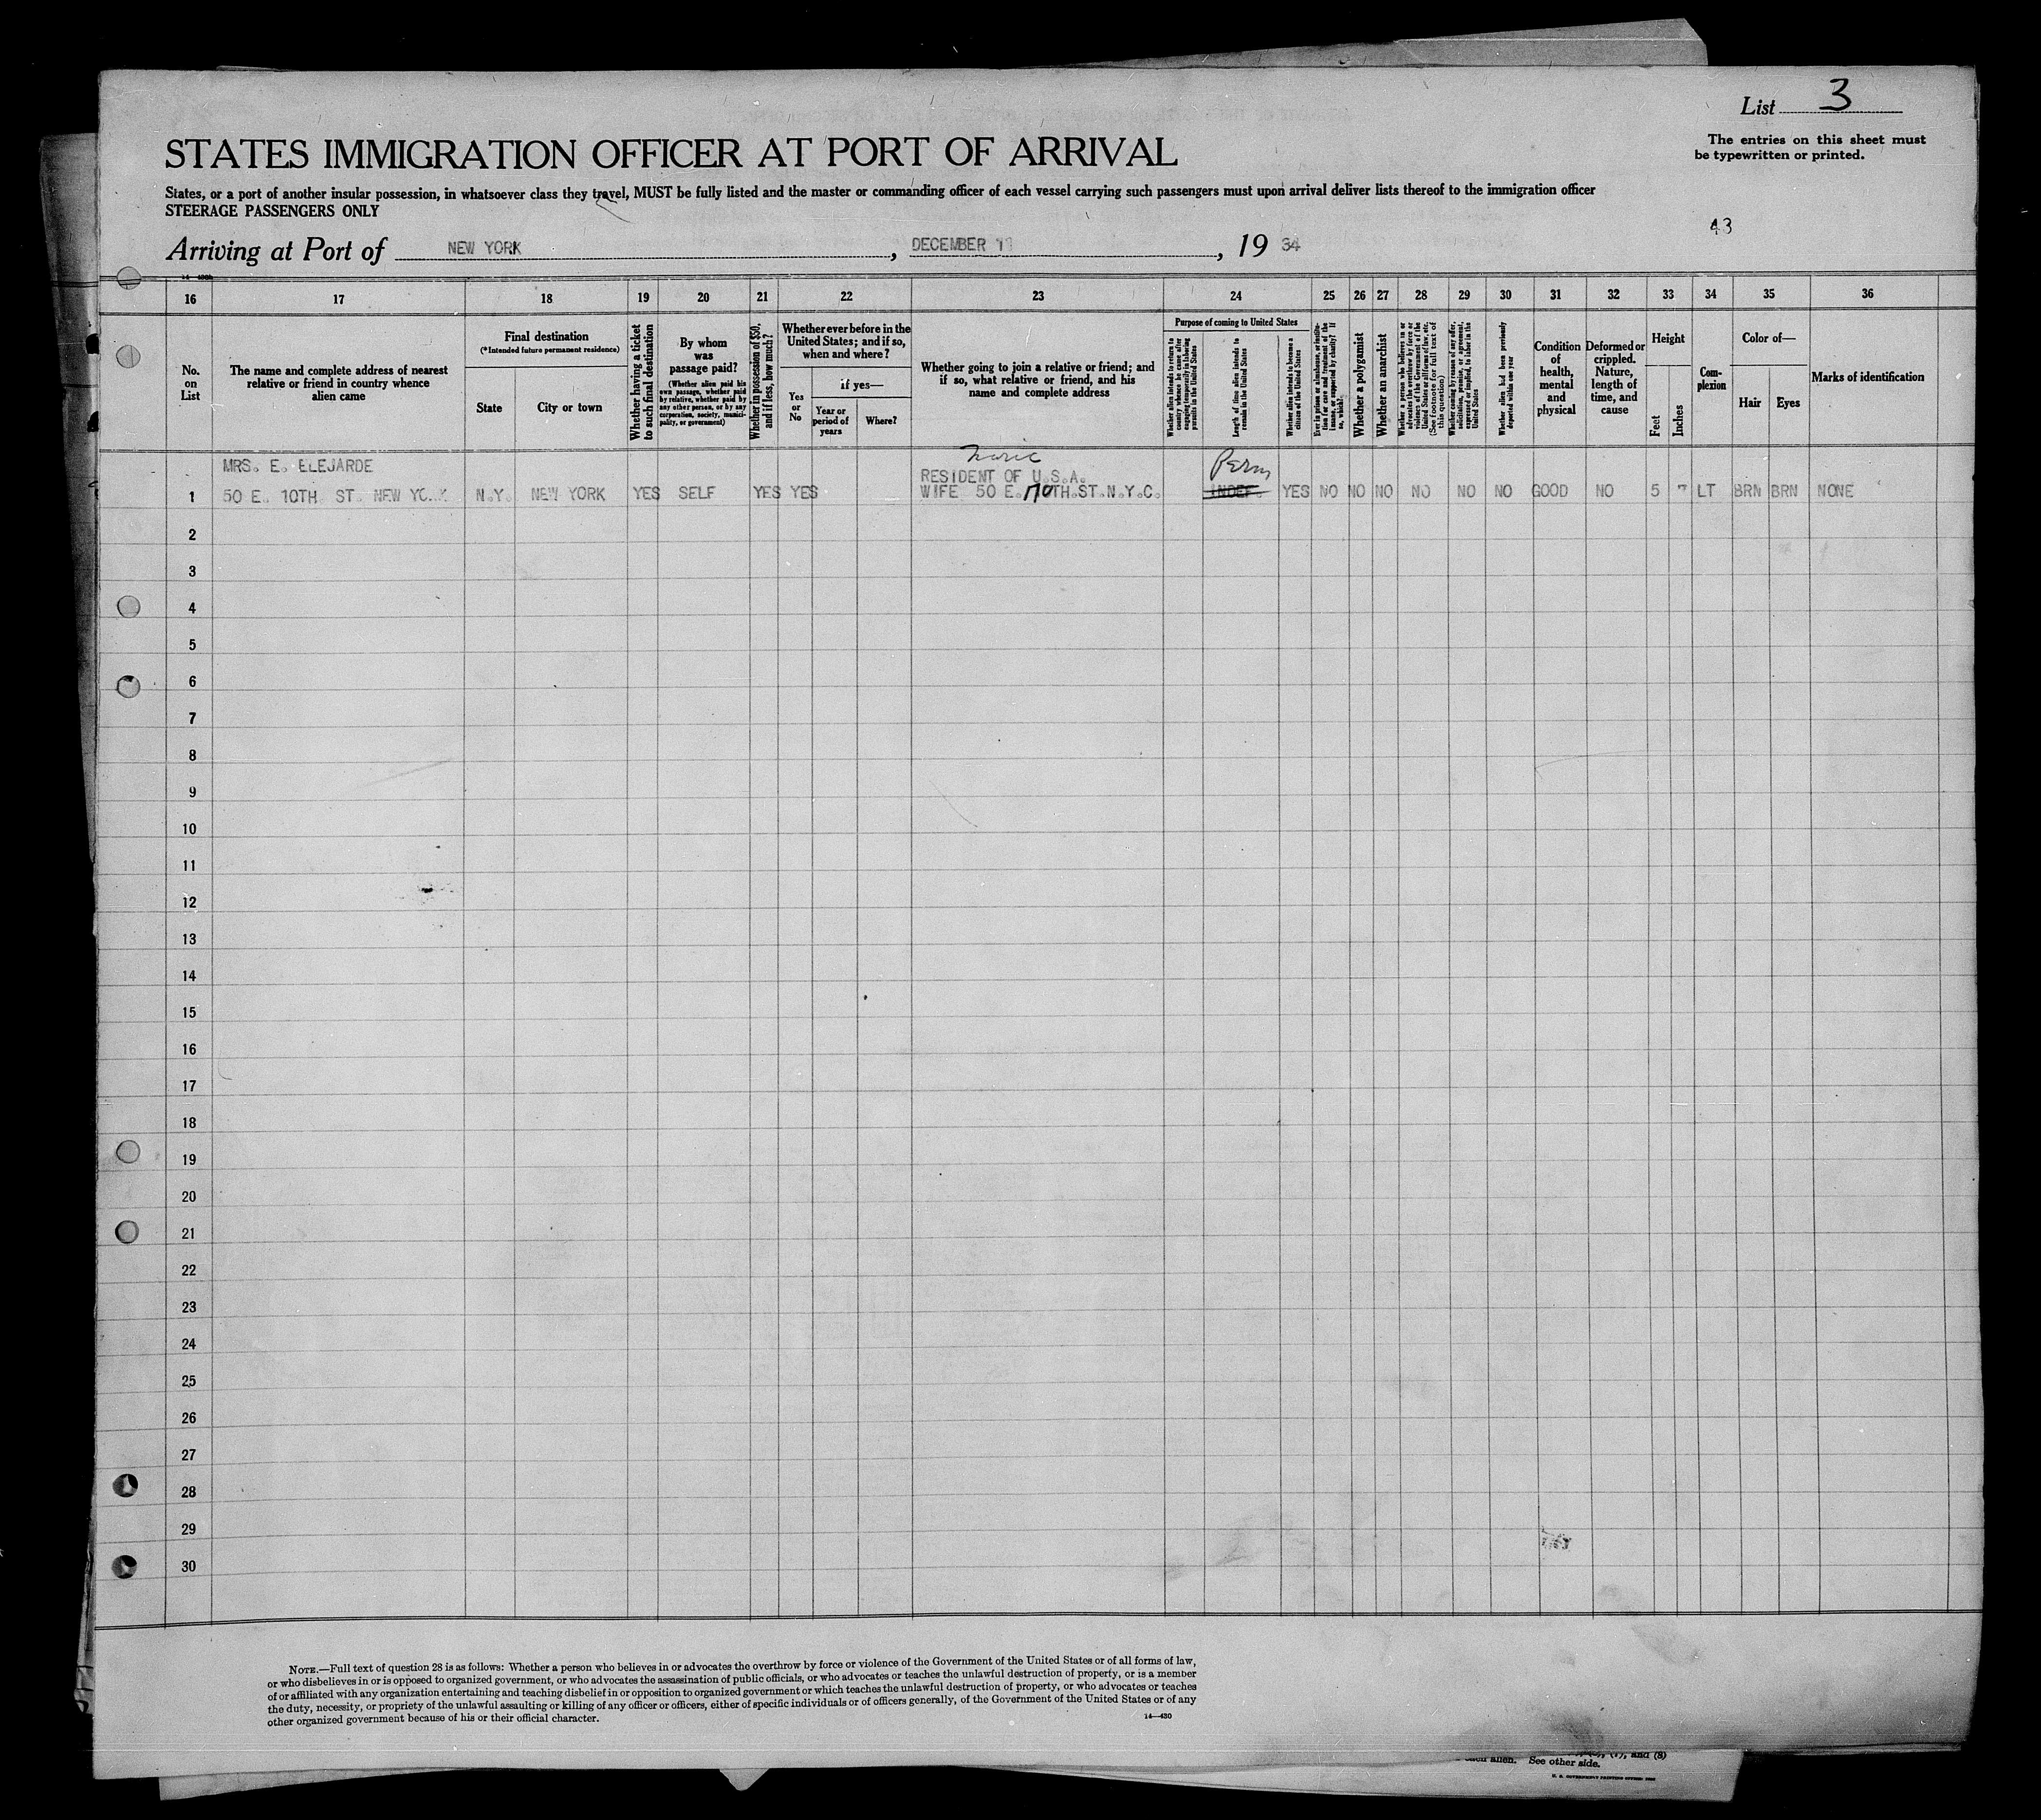 List 3
The entries on this sheet must
be typewritten or printed.
STATES IMMIGRATION OFFICER AT PORT OF ARRIVAL
States, or a port of another insular possession, in whatsoever class they travel, MUST be fully listed and the master or commanding officer of each vessel carrying such passengers must upon arrival deliver lists thereof to the immigration officer
STEERAGE PASSENGERS ONLY
43
Arriving at Port of NEW YORK, DECEMBER, 19 34
16 17 18 19 20 21 22 23 24 25 26 27 28 29 30 31 32 33 34 35 36
No.
on
List
The name and complete address of nearest
relative or friend in country whence
alien came
Final destination
(*Intended future permanent residence)
State
City or town
Whether having a ticket
to such final destination
By whom
was
passage paid?
(Whether alien paid his
own passage, whether paid
by relative, whether paid by
any other person, or by any
corporation, society, munici-
pality, or government)
Whether in possession of $50,
and if less, how much?
Whether ever before in the
United States; and if so,
when and where?
Yes
or
No
if yes—
Year or
period of
years
Where?
Whether going to join a relative or friend; and
if so, what relative or friend, and his
name and complete address
Purpose of coming to United States
Whether alien intends to return to
country whence he came after
engaging temporarily in laboring
pursuits in the United States
Length of time alien intends to
remain in the United States
Whether alien intends to become a
citizen of the United States
Ever in prison or almshouse, or institu-
tion for care and treatment of the
insane, or supported by charity? If
so, which?
Whether a polygamist
Whether an anarchist
Whether a person who believes in or
advocates the overthrow by force or
violence of the Government of the
United States or all forms of law, etc.
(See footnote for full text of
this question)
Whether coming by reason of any offer,
solicitation, promise, or agreement,
expressed or implied, to labor in the
United States
Whether alien had been previously
deported within one year
Condition
of
health,
mental
and
physical
Deformed or
crippled.
Nature,
length of
time, and
cause
Height
Feet
Inches
Com-
plexion
Color of—
Hair
Eyes
Marks of identification
MRS. E. ELEJARDE
RESIDENT OF U.S.A.
Perm
1 50 E. 10TH ST. NEW YORK N.Y. NEW YORK YES SELF YES YES WIFE 50 E. 110TH.ST.N.Y.C. INDEF. YES NO NO NO NO NO NO GOOD NO 5 7 LT BRN BRN NONE
2
3
4
5
6
7
8
9
10
11
12
13
14
15
16
17
18
19
20
21
22
23
24
25
26
27
28
29
30
NOTE.—Full text of question 28 is as follows: Whether a person who believes in or advocates the overthrow by force or violence of the Government of the United States or of all forms of law,
or who disbelieves in or is opposed to organized government, or who advocates the assassination of public officials, or who advocates or teaches the unlawful destruction of property, or is a member
of or affiliated with any organization entertaining and teaching disbelief in or opposition to organized government or which teaches the unlawful destruction of property, or who advocates or teaches
the duty, necessity, or propriety of the unlawful assaulting or killing of any officer or officers, either of specific individuals or of officers generally, of the Government of the United States or of any
other organized government because of his or their official character.
14—430
each alien. See other side.
and (8)